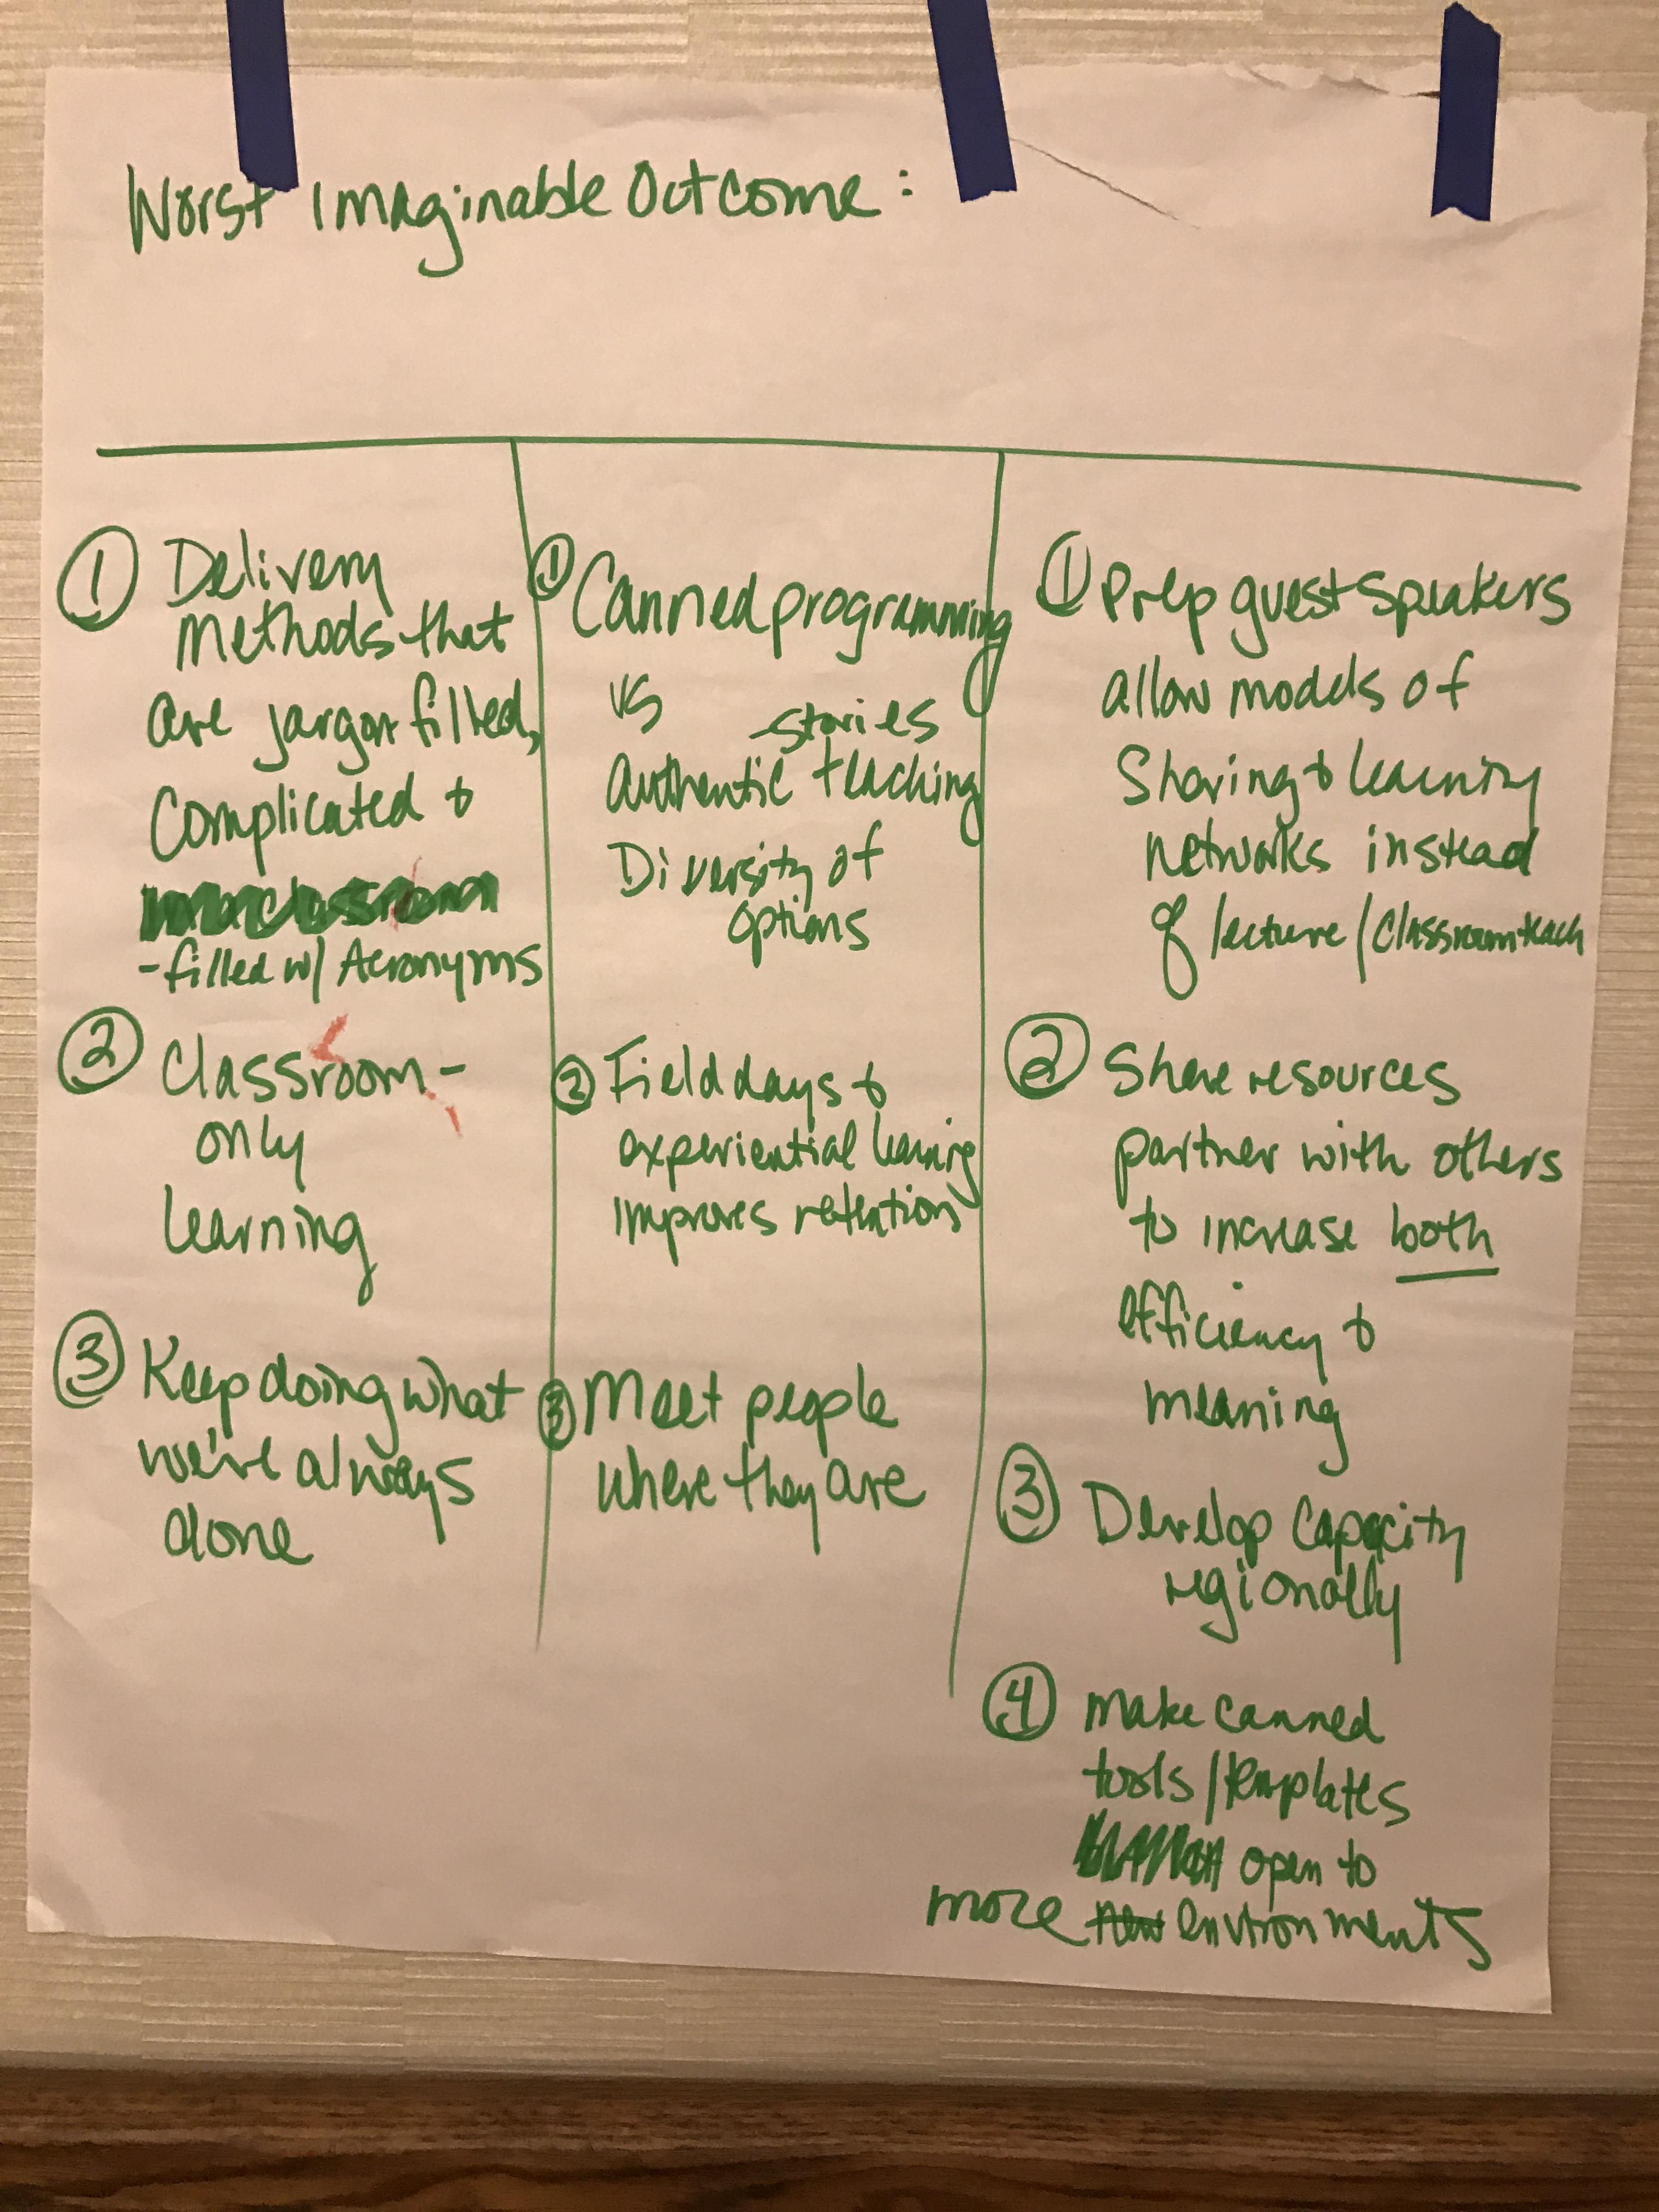 Worst Imaginable Outcome:
① Delivery
methods that
are jargon filled,
complicated &
-filled w/ Acronyms
② Classroom-
only
learning
③ Keep doing what
we've always
done
① Canned programming
vs
-stories
authentic teaching
Diversity of
options
② Field days &
experiential learning
improves retention
③ Meet people
where they are
① Prep guest speakers
allow models of
Sharing & learning
networks instead
of lecture/classroom teach
② Share resources
partner with others
to increase both
efficiency &
meaning
③ Develop capacity
regionally
④ make canned
tools/templates
open to
more new environments